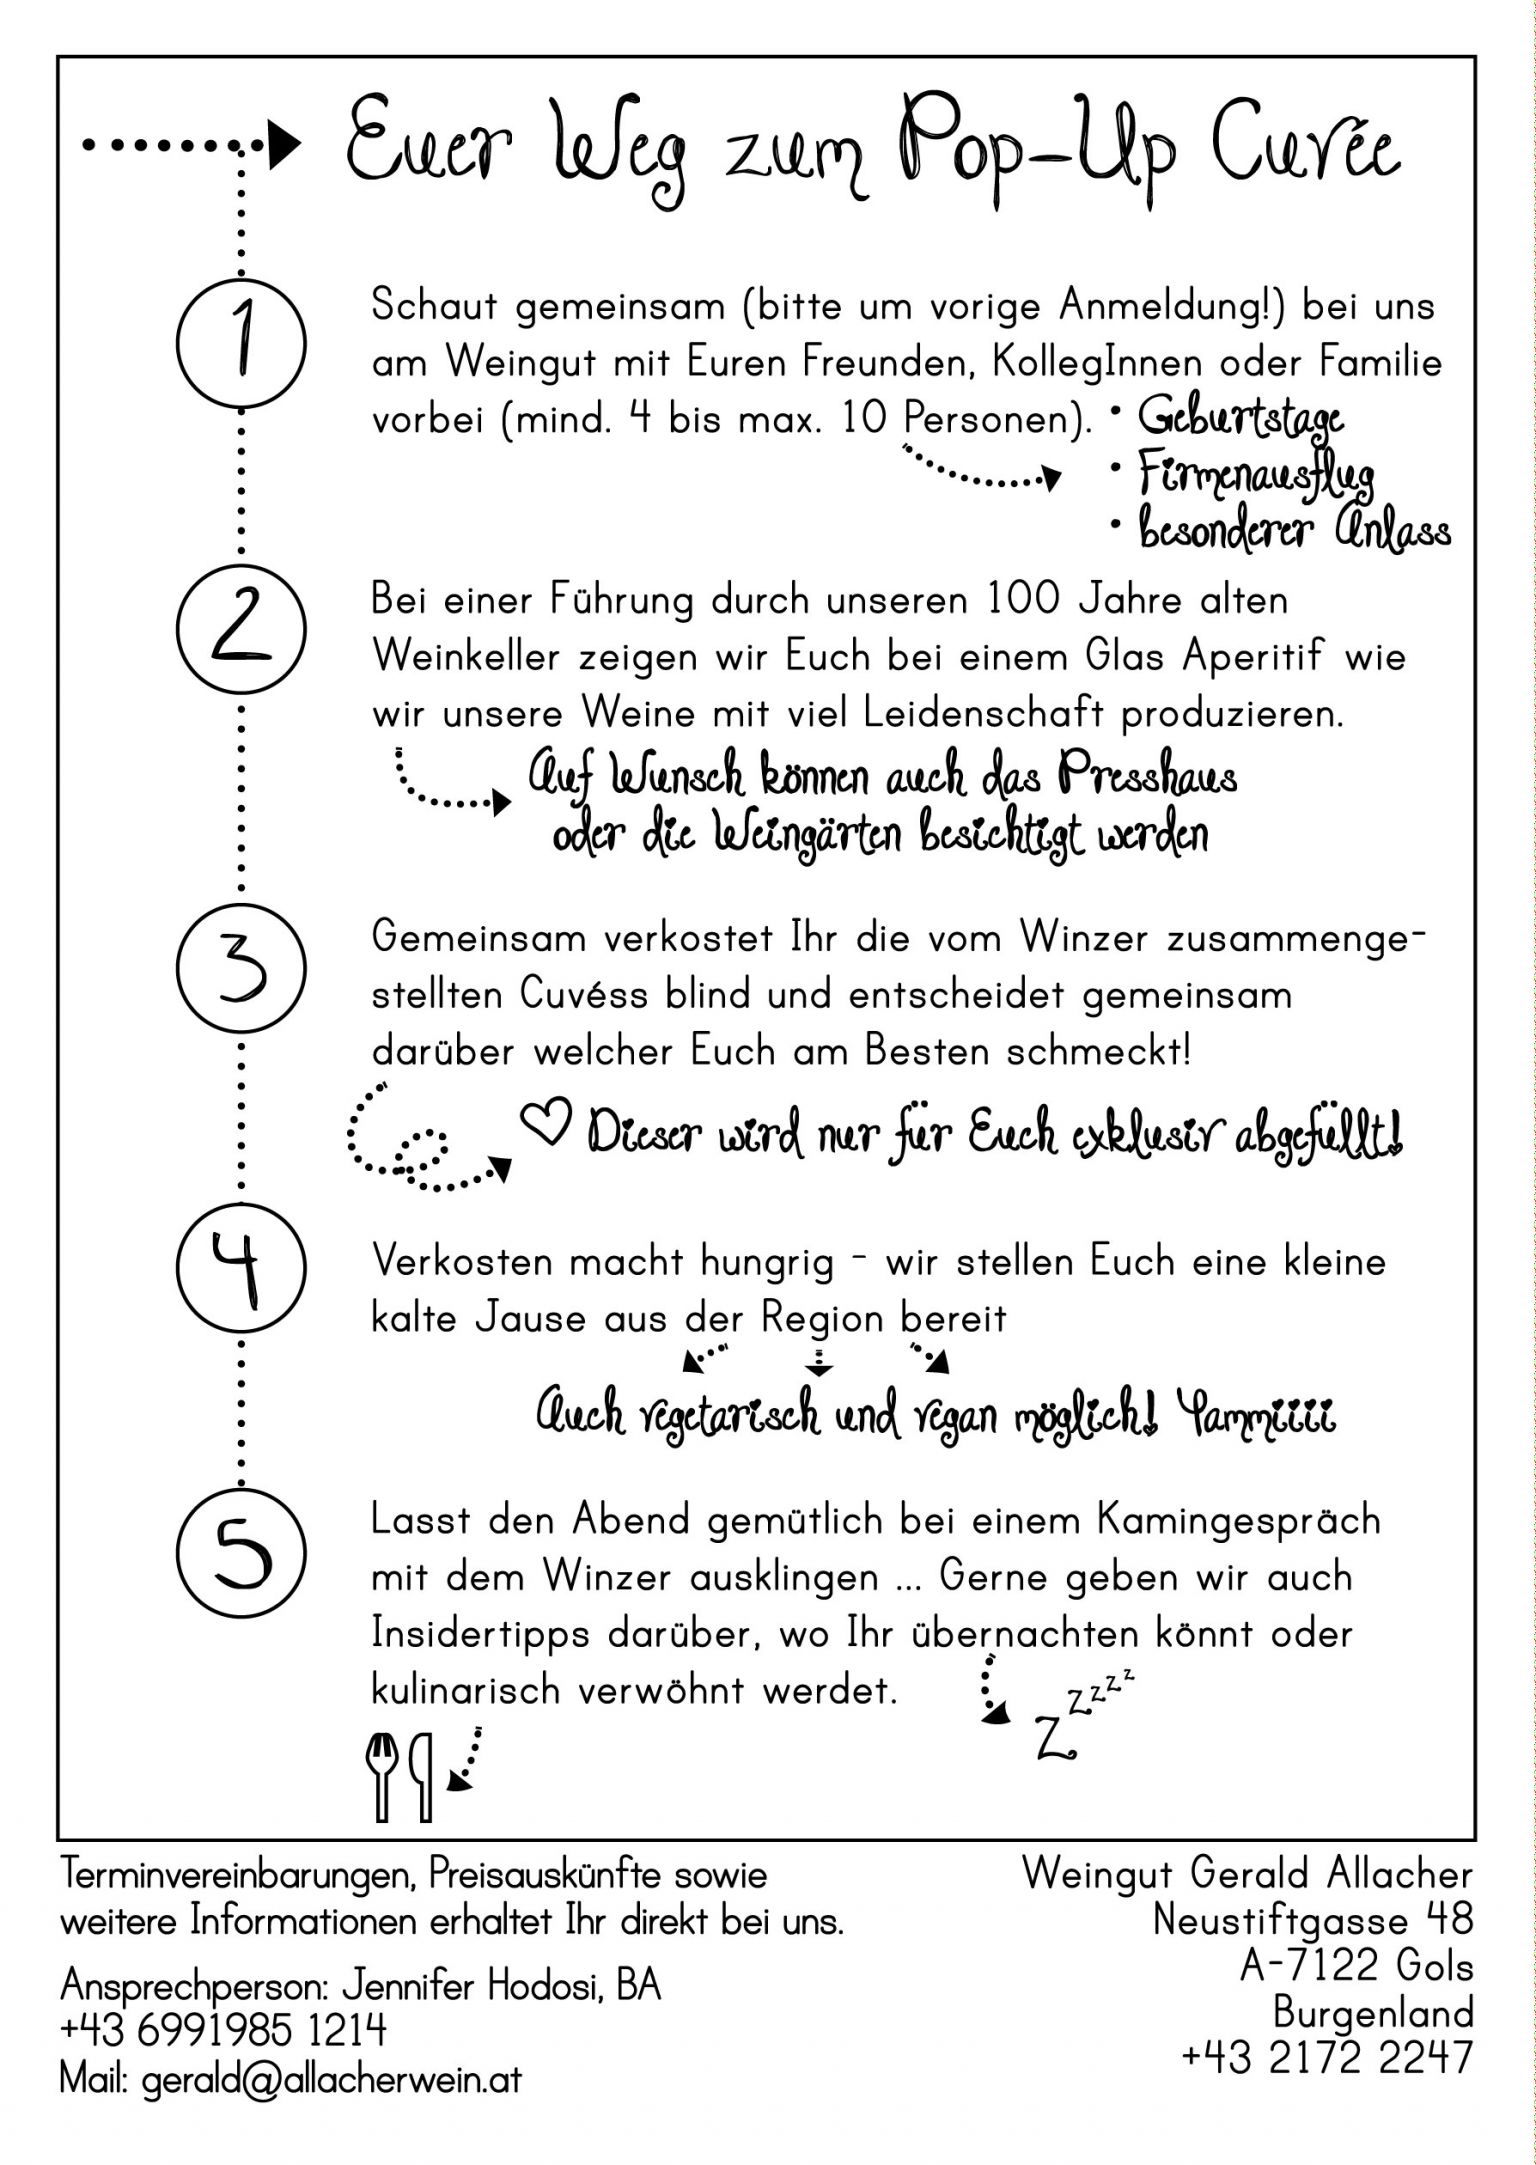 Euer Weg zum Pop-Up Cuvée
1
Schaut gemeinsam (bitte um vorige Anmeldung!) bei uns
am Weingut mit Euren Freunden, KollegInnen oder Familie
vorbei (mind. 4 bis max. 10 Personen).
• Geburtstage
• Firmenausflug
• besonderer Anlass
2
Bei einer Führung durch unseren 100 Jahre alten
Weinkeller zeigen wir Euch bei einem Glas Aperitif wie
wir unsere Weine mit viel Leidenschaft produzieren.
Auf Wunsch können auch das Presshaus
oder die Weingärten besichtigt werden
3
Gemeinsam verkostet Ihr die vom Winzer zusammenge-
stellten Cuvéss blind und entscheidet gemeinsam
darüber welcher Euch am Besten schmeckt!
Dieser wird nur für Euch exklusiv abgefüllt!
4
Verkosten macht hungrig - wir stellen Euch eine kleine
kalte Jause aus der Region bereit
Auch vegetarisch und vegan möglich! Yammiiii
5
Lasst den Abend gemütlich bei einem Kamingespräch
mit dem Winzer ausklingen ... Gerne geben wir auch
Insidertipps darüber, wo Ihr übernachten könnt oder
kulinarisch verwöhnt werdet.
Zzzzz
Terminvereinbarungen, Preisauskünfte sowie
weitere Informationen erhaltet Ihr direkt bei uns.
Ansprechperson: Jennifer Hodosi, BA
+43 6991985 1214
Mail: gerald@allacherwein.at
Weingut Gerald Allacher
Neustiftgasse 48
A-7122 Gols
Burgenland
+43 2172 2247